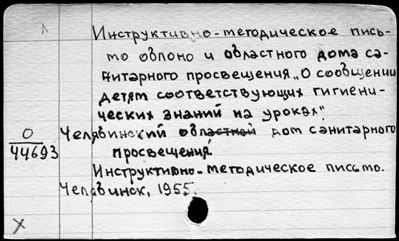 Инструктивно-методическое пись-
мо облоно и областного дома са-
нитарного просвещения „О сообщении
детям соответствующих гигиени-
ческих знаний на уроках".
О
44693
Челябинский областной дом санитарного
просвещения.
Инструктивно-методическое письмо.
Челябинск, 1955.
X